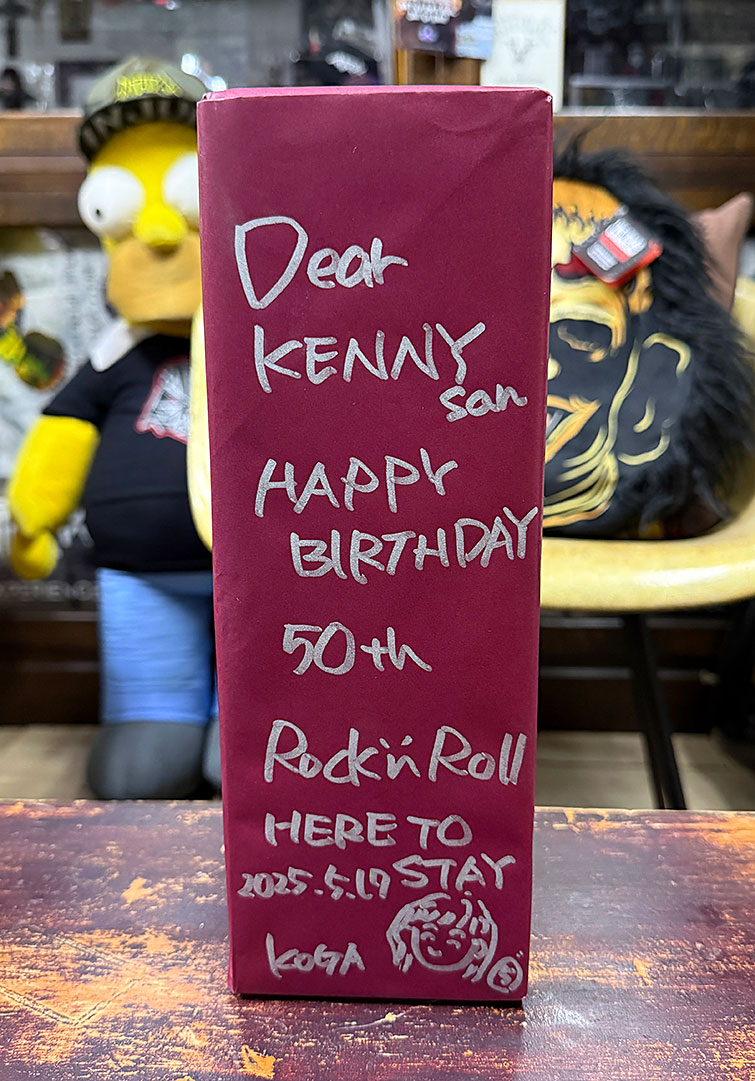 Dear
KENNY
san
HAPPY
BIRTHDAY
50th
Rock'n'Roll
HERE TO
STAY
2025.5.17
KOGA